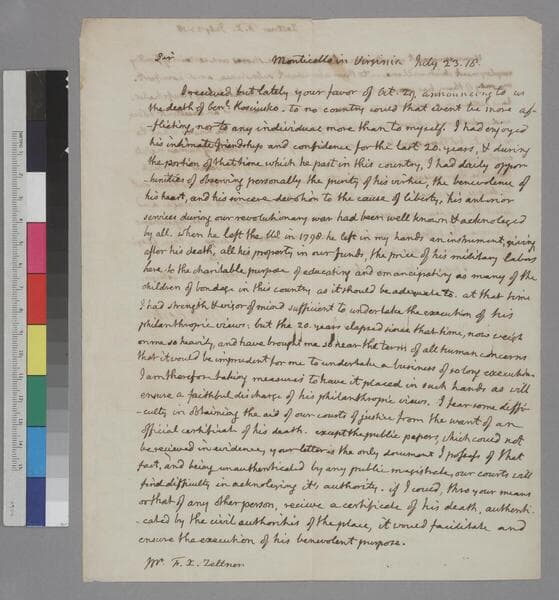 Sir
Monticello in Virginia July 23. 18.
I received but lately your favor of Oct. 29, announcing to us
the death of Genl. Kosciusko. to no country could that event be more af-
-flicting, nor to any individual more than to myself. I had enjoyed
his intimate friendship and confidence for the last 20. years, & during
the portion of that time which he past in this country, I had daily oppor-
-tunities of observing personally the purity of his virtue, the benevolence of
his heart, and his sincere devotion to the cause of liberty, his anterior
services during our revolutionary war had been well known & acknoleged
by all. when he left the US. in 1798. he left in my hands an instrument, giving
after his death, all his property in our funds, the price of his military labors
here to the charitable purpose of educating and emancipating as many of the
children of bondage in this country as it should be adequate to. at that time
I had strength & vigor of mind sufficient to undertake the execution of his
philanthropic views: but the 20. years elapsed since that time, now weigh
on me so heavily, and have brought me so near the term of all human concerns
that it would be imprudent for me to undertake a business of so long execution.
I am therefore taking measures to have it placed in such hands as will
ensure a faithful discharge of his philanthropic views. I fear some diffi-
-culty in obtaining the aid of our courts of justice from the want of an
official certificate of his death. except the public papers, which could not
be recieved in evidence, your letter is the only document I possess of that
fact, and being unauthenticated by any public magistrate, our courts will
find difficulty in acknoleging it's authority. if I could, thro your means
or that of any other person, recieve a certificate of his death, authenti-
-cated by the civil authorities of the place, it would facilitate and
ensure the execution of his benevolent purpose.
Mr. F. X. Zeltner